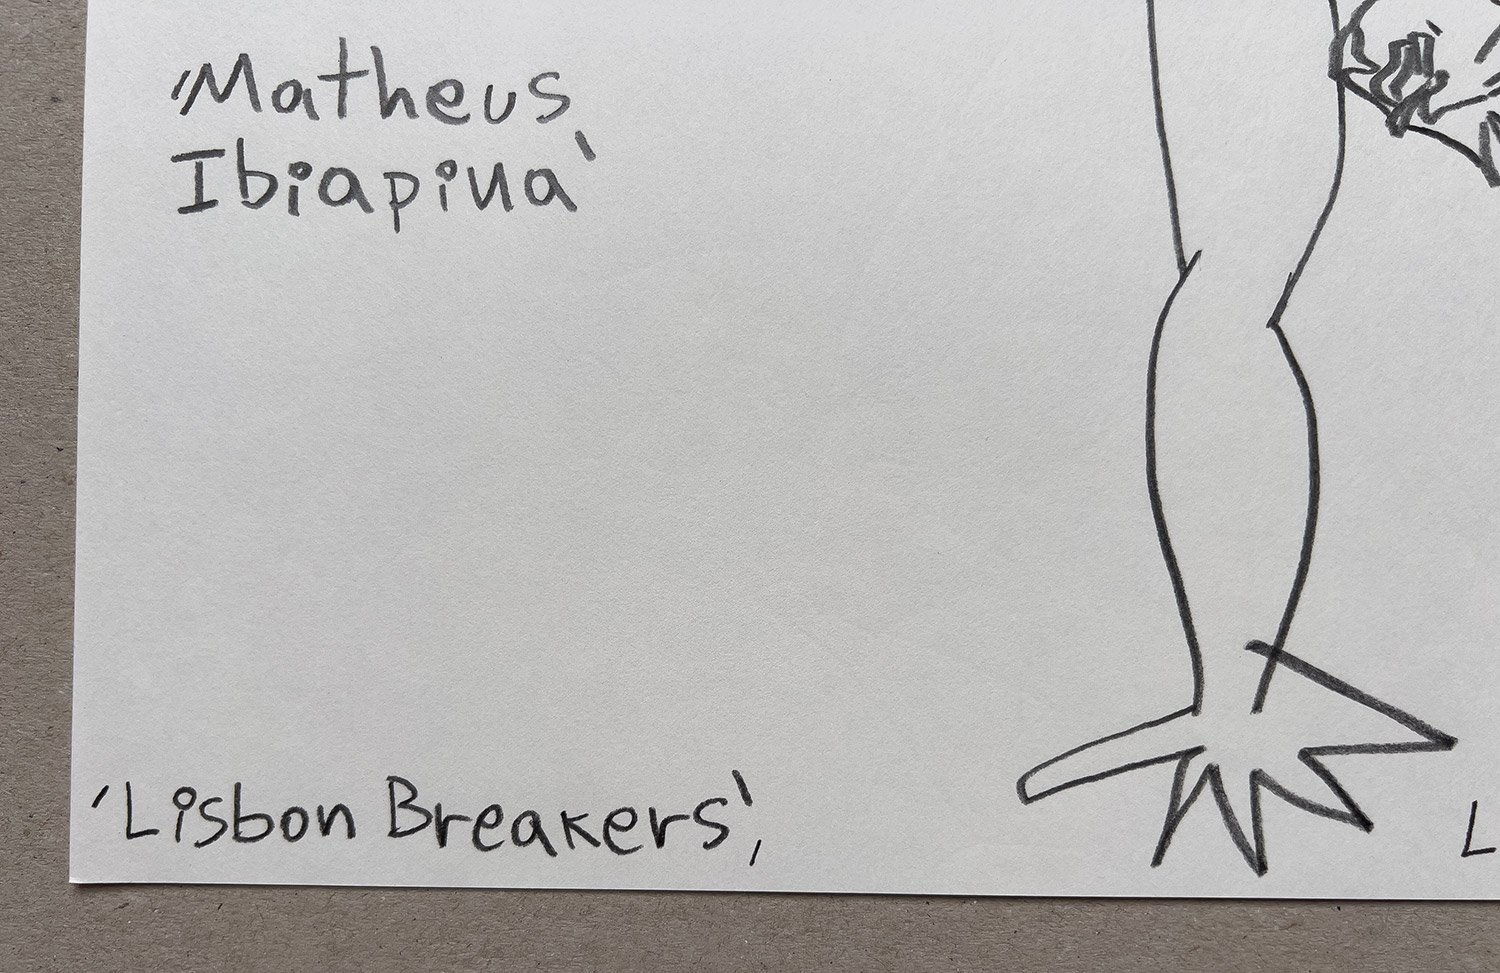 'Matheus
Ibiapina'
'Lisbon Breakers',
L